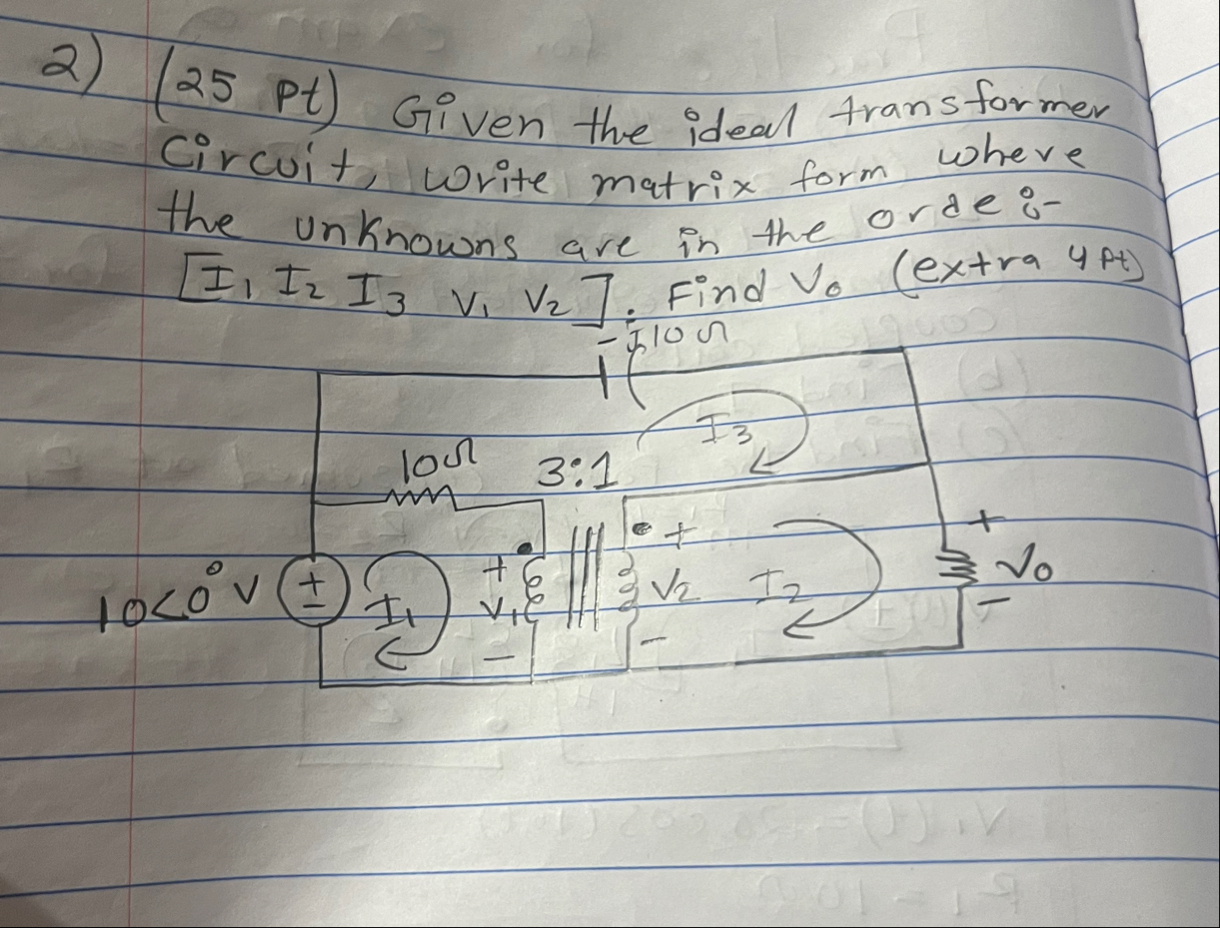 2) (25 pt) Given the ideal transformer
circuit, write matrix form where
the unknowns are in the orde :-
[I₁ I₂ I₃ V₁ V₂]. Find V₀ (extra 4 pt)
-j10Ω
I₃
10Ω 3:1
+ + +
10<0° V + - I₁ V₁ V₂ I₂ V₀
- - -